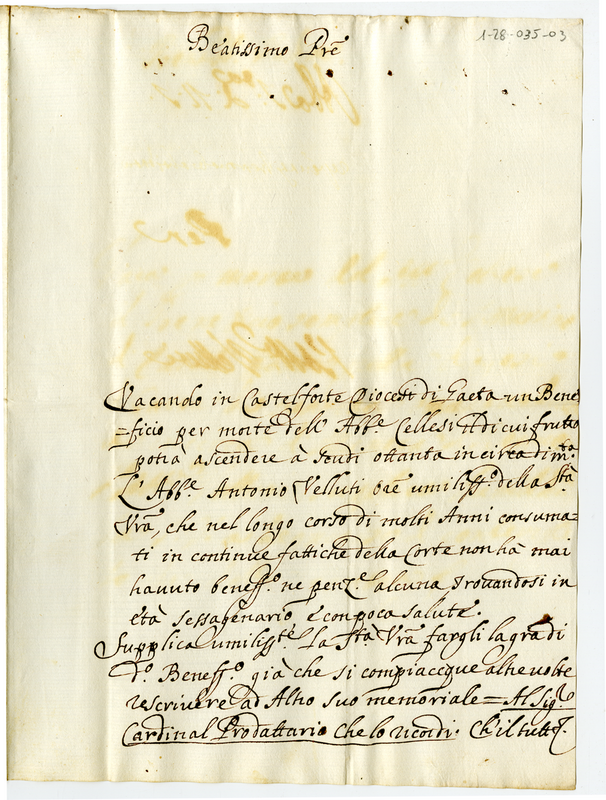 1-28-035-03
Beatissimo Prē
Vacando in Castelforte Diocesi di Gaeta un Bene
=ficio per morte dell' Abb.e Cellesi di cui frutto
potrà ascendere à scudi ottanta in circa di m.ta
L' Abb.e Antonio Velluti Ore umiliss.o della S.tà
Vrā, che nel longo corso di molti Anni consuma=
ti in continue fattiche della Corte non hà mai
havuto beneff.o ne penz.e alcuna trovandosi in
età sessagenario, e con poca salute.
Supplica umiliss.te la S.tà Vrā fargli la grā di
d.o Beneff.o già che si compiacque altre volte
rescrivere ad Altro suo memoriale = Al Sig.r
Cardinal Prodattario che lo ricordi. Ch'il tutto